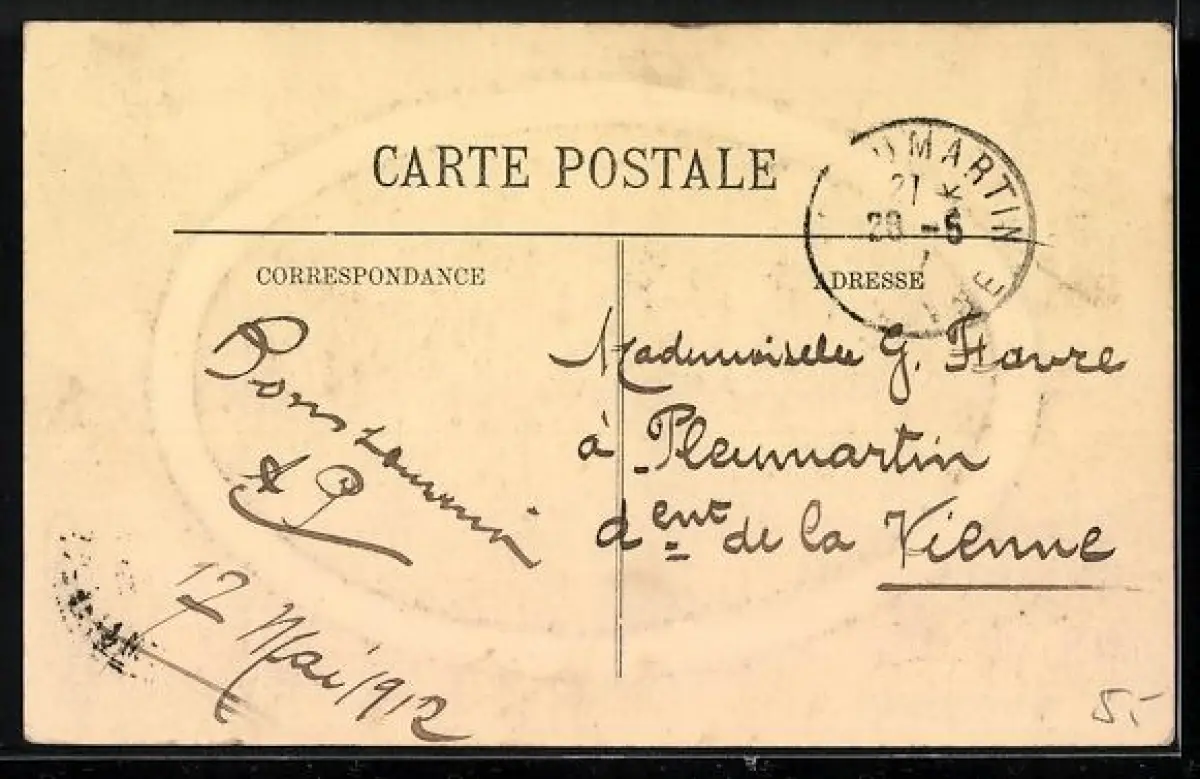 CARTE POSTALE
MARTIN
21
20 -5
CORRESPONDANCE
ADRESSE
Bons
17 Mai 1912
Mademoiselle G. Favre
à Pleumartin
dent de la Vienne
5.-